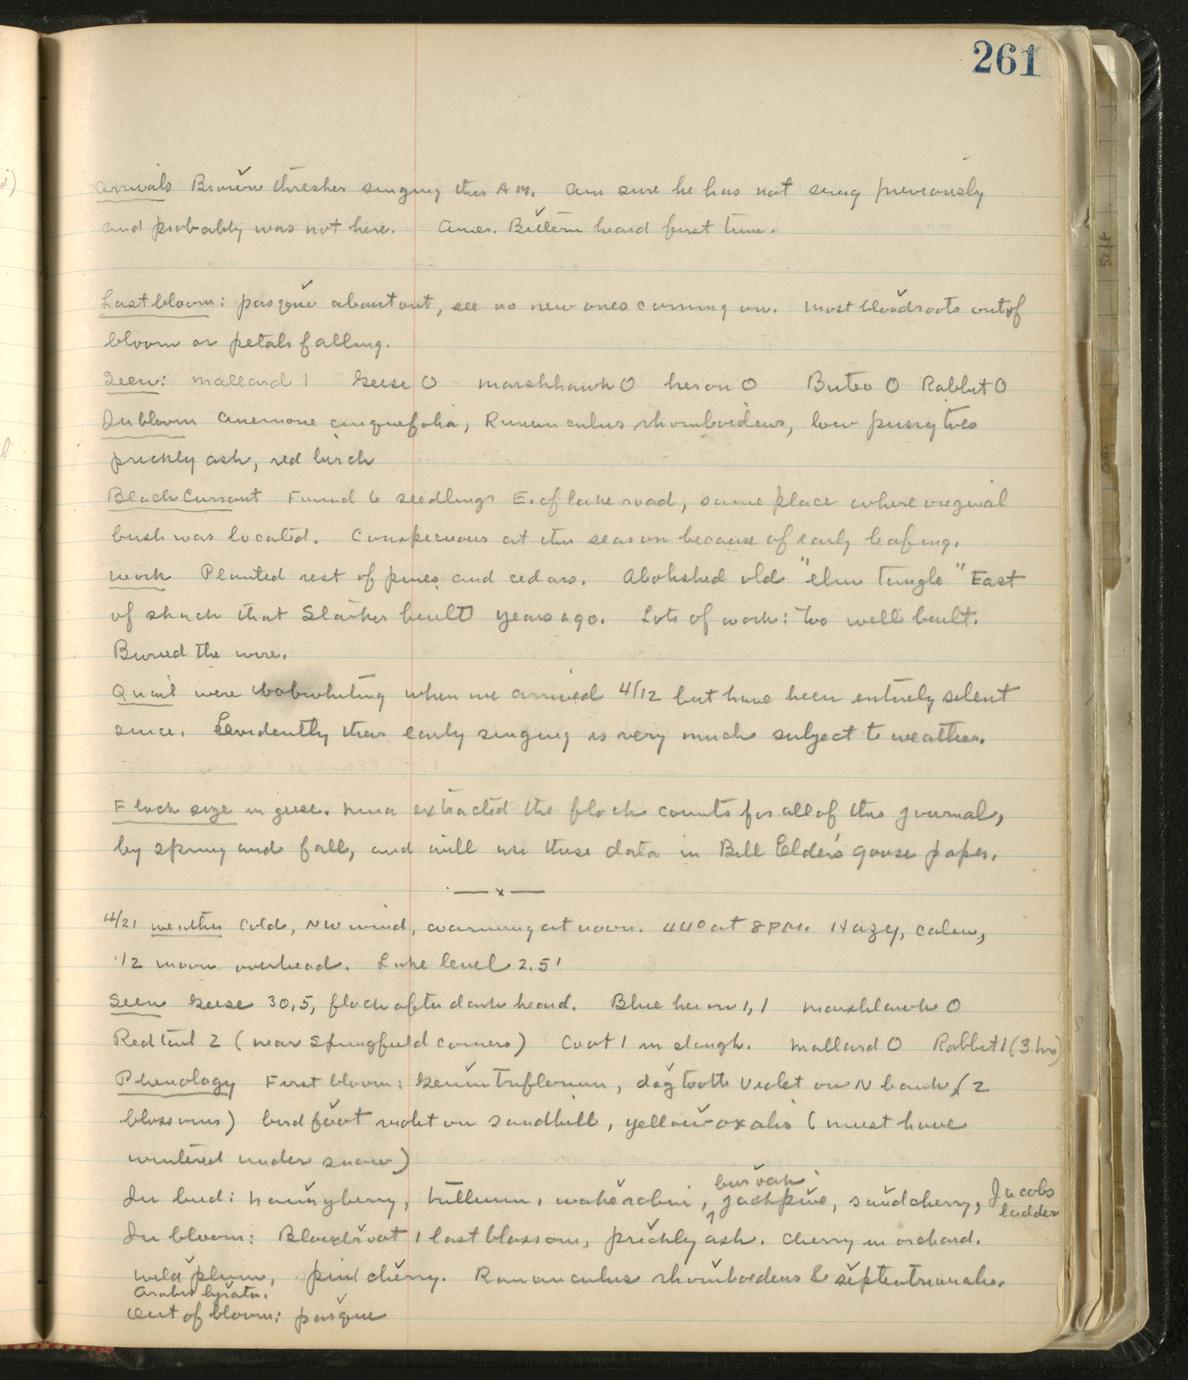 261
Arrivals Brown thrasher singing this A.M. Am sure he has not sung previously
and probably was not here. Amer. Bittern heard first time.
Last bloom: pasque about out, see no new ones coming on. Most bloodroots out of
bloom or petals falling.
Seen: Mallard 1 Geese 0 marshhawk 0 heron 0 Buteo 0 Rabbit 0
In bloom Anemone cinquefolia, Ranunculus rhomboideus, low pussytoes
prickly ash, red birch
Black Currant Found 6 seedlings E. of lake road, same place where original
bush was located. Conspicuous at this season because of early leafing.
Work Planted rest of pines and cedars. Abolished old "elm tangle" East
of shack that Starker built years ago. Lots of work: too well built.
Buried the wire.
Quail were bobwhiting when we arrived 4/12 but have been entirely silent
since. Evidently their early singing is very much subject to weather.
Flock size in geese. Nina extracted the flock counts for all of this journal,
by spring and fall, and will use these data in Bill Elder's goose paper.
—x—
4/21 weather Cold, NW wind, warming at noon. 44° at 8 PM. Hazy, calm,
1/2 moon overhead. Lake level 2.5'
Seen Geese 30, 5, flock after dark heard. Blue heron 1, 1 Marshhawk 0
Redtail 2 (near Springfield corners) Coot 1 in slough. Mallard 0 Rabbit 1 (3 hrs)
Phenology First bloom: Geum triflorum, dogtooth violet on N bank, (2
blossoms) birdfoot violet on sandhill, yellow oxalis (must have
wintered under snow)
bur oak
In bud: nannyberry, trillium, wakerobin, jackpine, sandcherry, Jacobs ladder
In bloom: Bloodroot 1 last blossom, prickly ash. Cherry in orchard.
wild plum, pin cherry. Ranunculus rhomboideus & septentrionalis.
Arabis lyrata.
Out of bloom: pasque